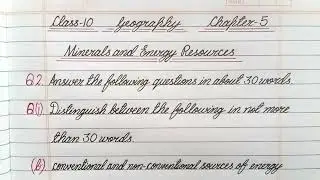 Class-10 Geography Chapter-5
Minerals and Energy Resources
Q2. Answer the following questions in about 30 words.
Q(i). Distinguish between the following in not more
than 30 words.
(b) conventional and non-conventional sources of energy